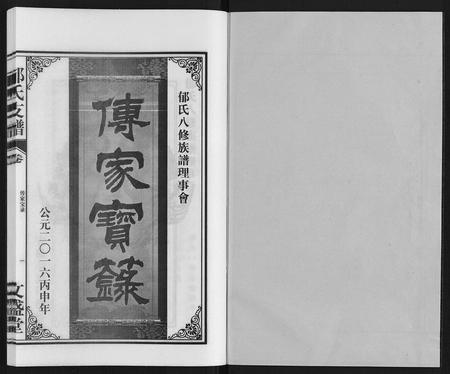 郇氏八修族譜理事會
傳家寶籙
公元二〇一六丙申年
郇氏支譜
卷
傳家寶籙
一
文盛堂